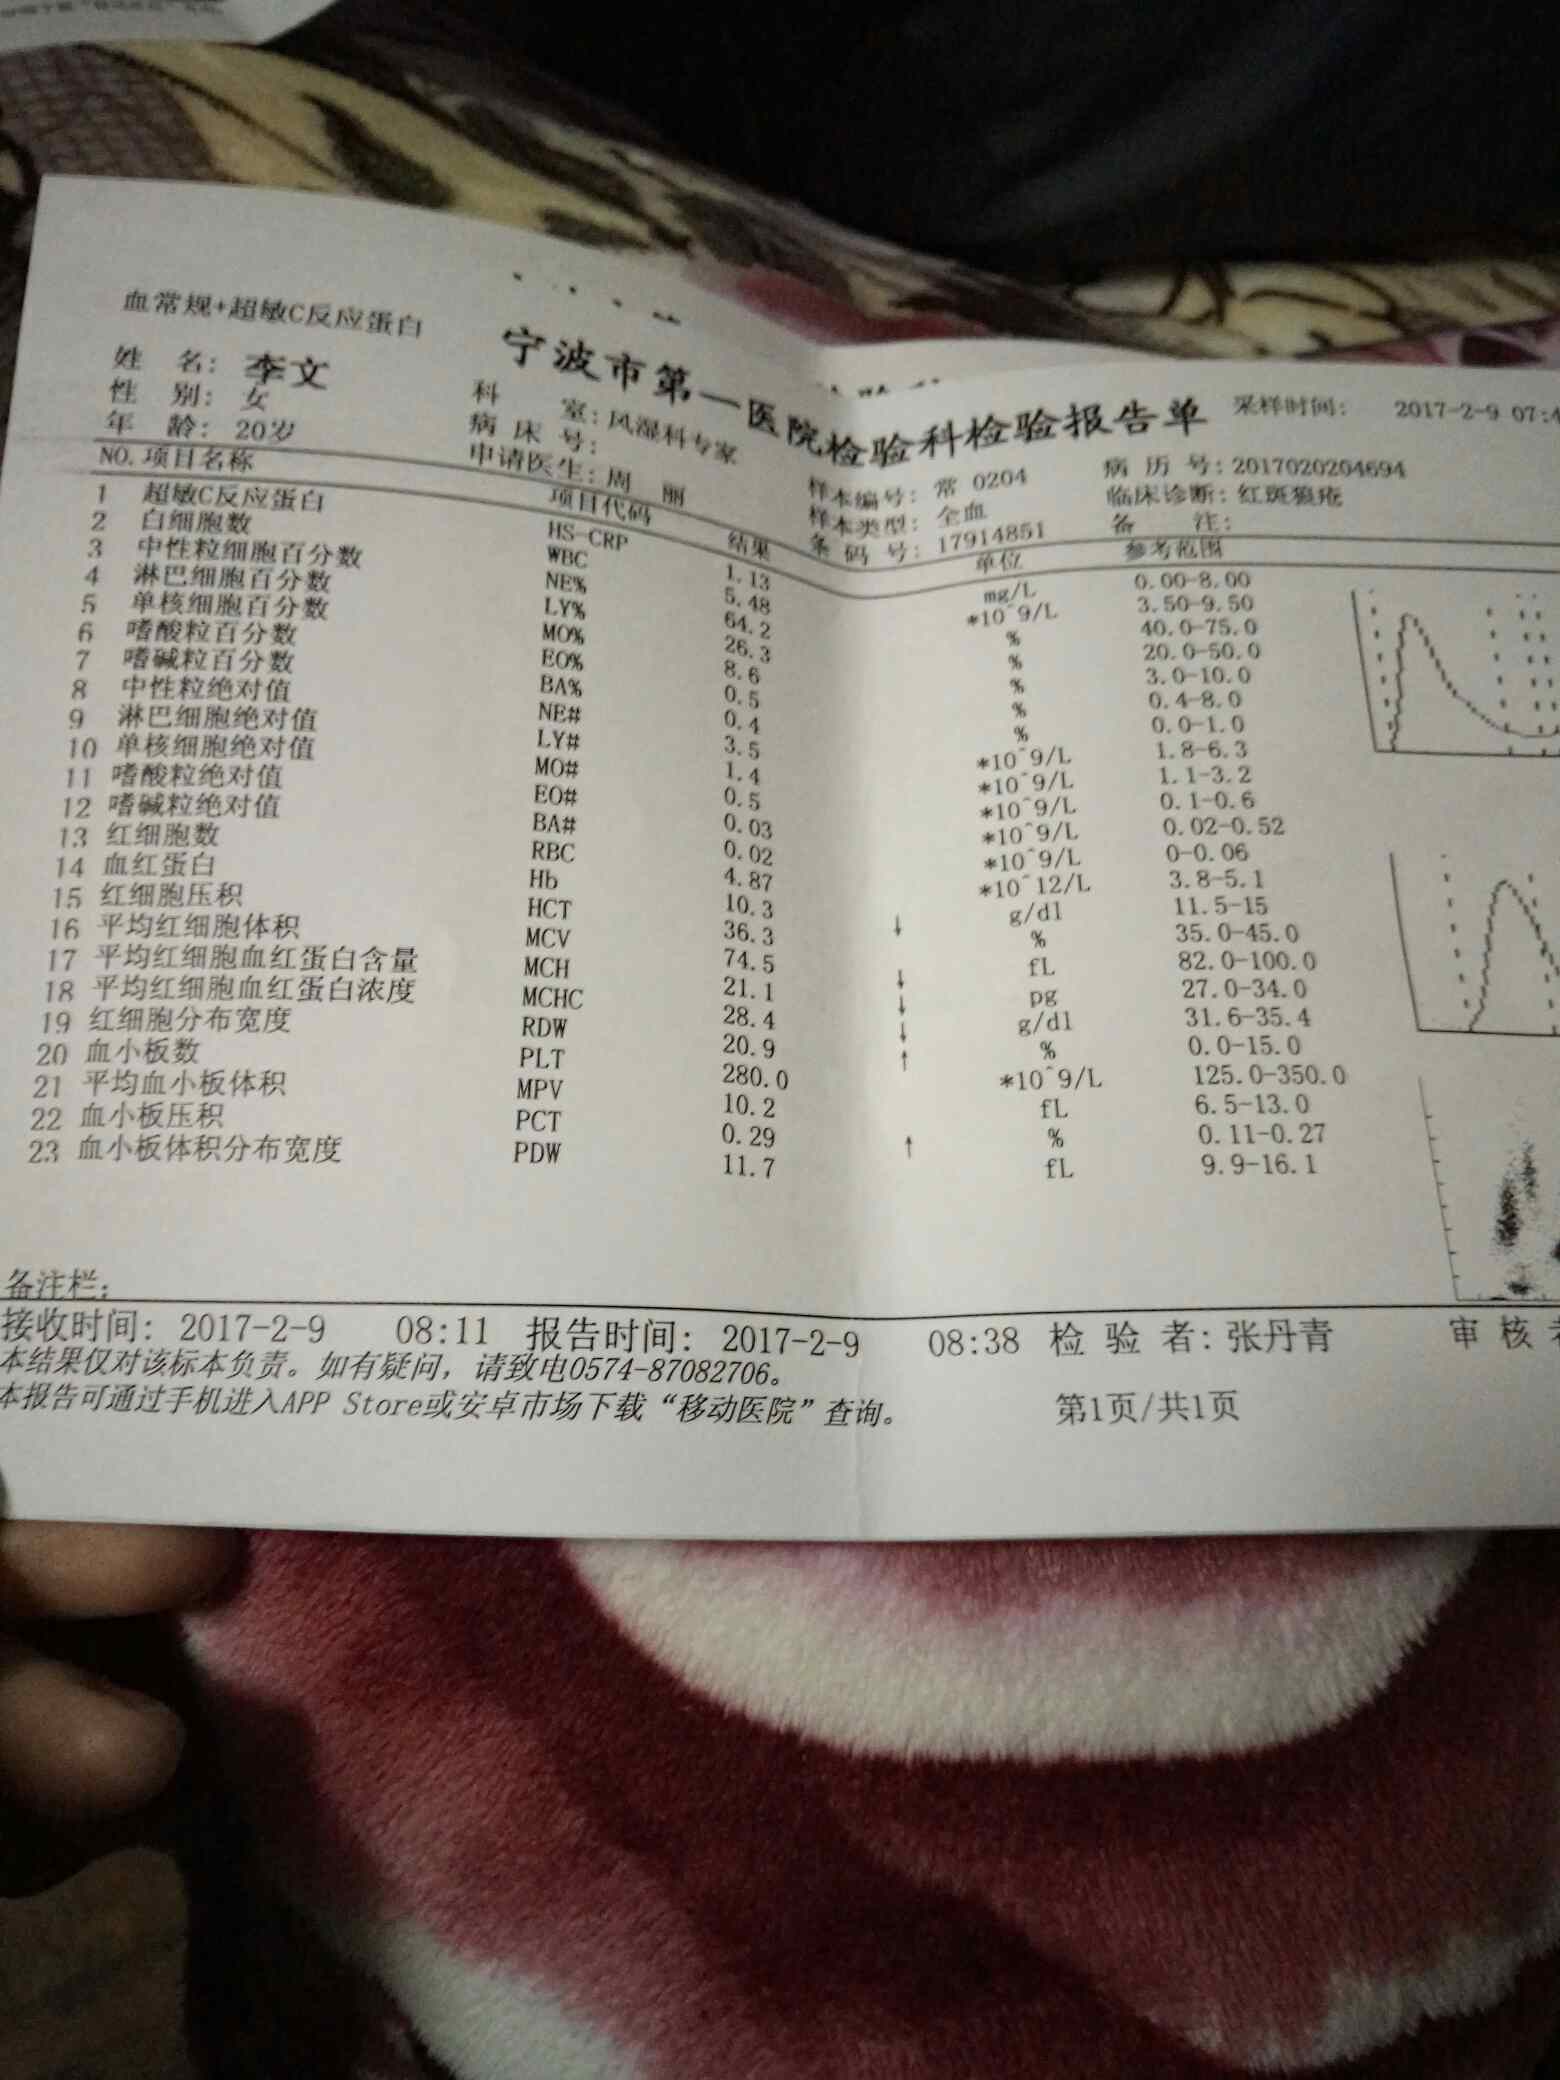 血常规+超敏C反应蛋白
宁波市第一医院检验科检验报告单
采样时间: 2017-2-9 07:4
姓 名: 李文 科 室: 风湿科专家 样本编号: 常 0204 病 历 号: 2017020204694
性 别: 女 病 床 号: 样本类型: 全血 临床诊断: 红斑狼疮
年 龄: 20岁 申请医生: 周 丽 条 码 号: 17914851 备 注:
NO. 项目名称 项目代码 结果 单位 参考范围
1 超敏C反应蛋白 HS-CRP 1.13 mg/L 0.00-8.00
2 白细胞数 WBC 5.48 *10^9/L 3.50-9.50
3 中性粒细胞百分数 NE% 64.2 % 40.0-75.0
4 淋巴细胞百分数 LY% 26.3 % 20.0-50.0
5 单核细胞百分数 MO% 8.6 % 3.0-10.0
6 嗜酸粒百分数 EO% 0.5 % 0.4-8.0
7 嗜碱粒百分数 BA% 0.4 % 0.0-1.0
8 中性粒绝对值 NE# 3.5 *10^9/L 1.8-6.3
9 淋巴细胞绝对值 LY# 1.4 *10^9/L 1.1-3.2
10 单核细胞绝对值 MO# 0.5 *10^9/L 0.1-0.6
11 嗜酸粒绝对值 EO# 0.03 *10^9/L 0.02-0.52
12 嗜碱粒绝对值 BA# 0.02 *10^9/L 0-0.06
13 红细胞数 RBC 4.87 *10^12/L 3.8-5.1
14 血红蛋白 Hb 10.3 ↓ g/dl 11.5-15
15 红细胞压积 HCT 36.3 % 35.0-45.0
16 平均红细胞体积 MCV 74.5 ↓ fL 82.0-100.0
17 平均红细胞血红蛋白含量 MCH 21.1 ↓ pg 27.0-34.0
18 平均红细胞血红蛋白浓度 MCHC 28.4 ↓ g/dl 31.6-35.4
19 红细胞分布宽度 RDW 20.9 ↑ % 0.0-15.0
20 血小板数 PLT 280.0 *10^9/L 125.0-350.0
21 平均血小板体积 MPV 10.2 fL 6.5-13.0
22 血小板压积 PCT 0.29 ↑ % 0.11-0.27
23 血小板体积分布宽度 PDW 11.7 fL 9.9-16.1
备注栏:
接收时间: 2017-2-9 08:11 报告时间: 2017-2-9 08:38 检 验 者: 张丹青 审 核
本结果仅对该标本负责。如有疑问, 请致电0574-87082706。
本报告可通过手机进入APP Store或安卓市场下载“移动医院”查询。 第1页/共1页